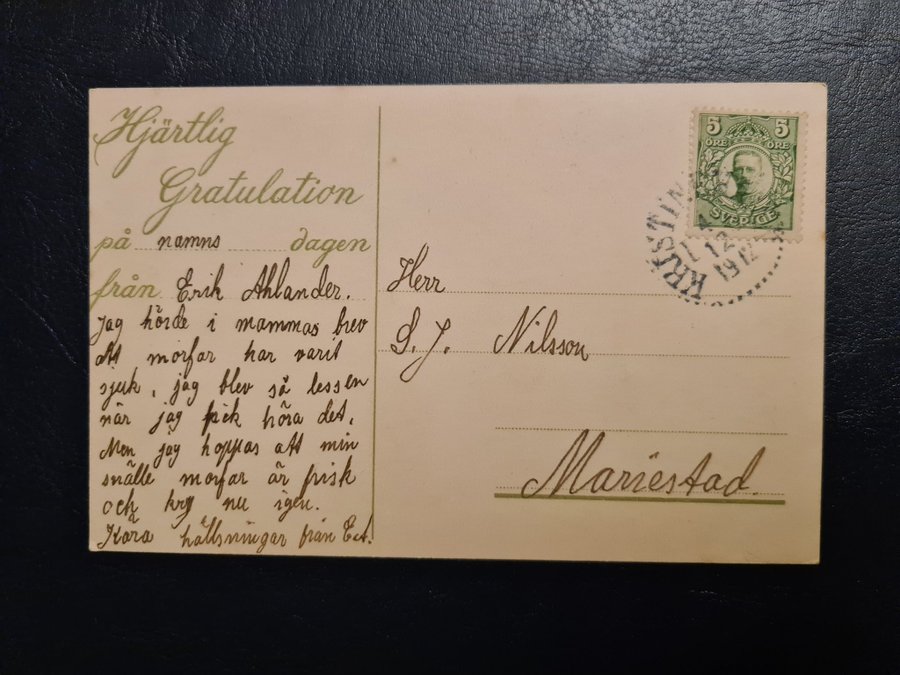 Hjärtlig
Gratulation
på namns dagen
från Erik Ahlander.
Jag hörde i mammas brev
att morfar har varit
sjuk, jag blev så lessen
när jag fick höra det.
Men jag hoppas att min
snälle morfar är frisk
och kry nu igen.
Kära hällsningar från E.A.
5 5
ÖRE ÖRE
SVERIGE
KRISTIN
12
1912
Herr
S. J. Nilsson
Mariestad.